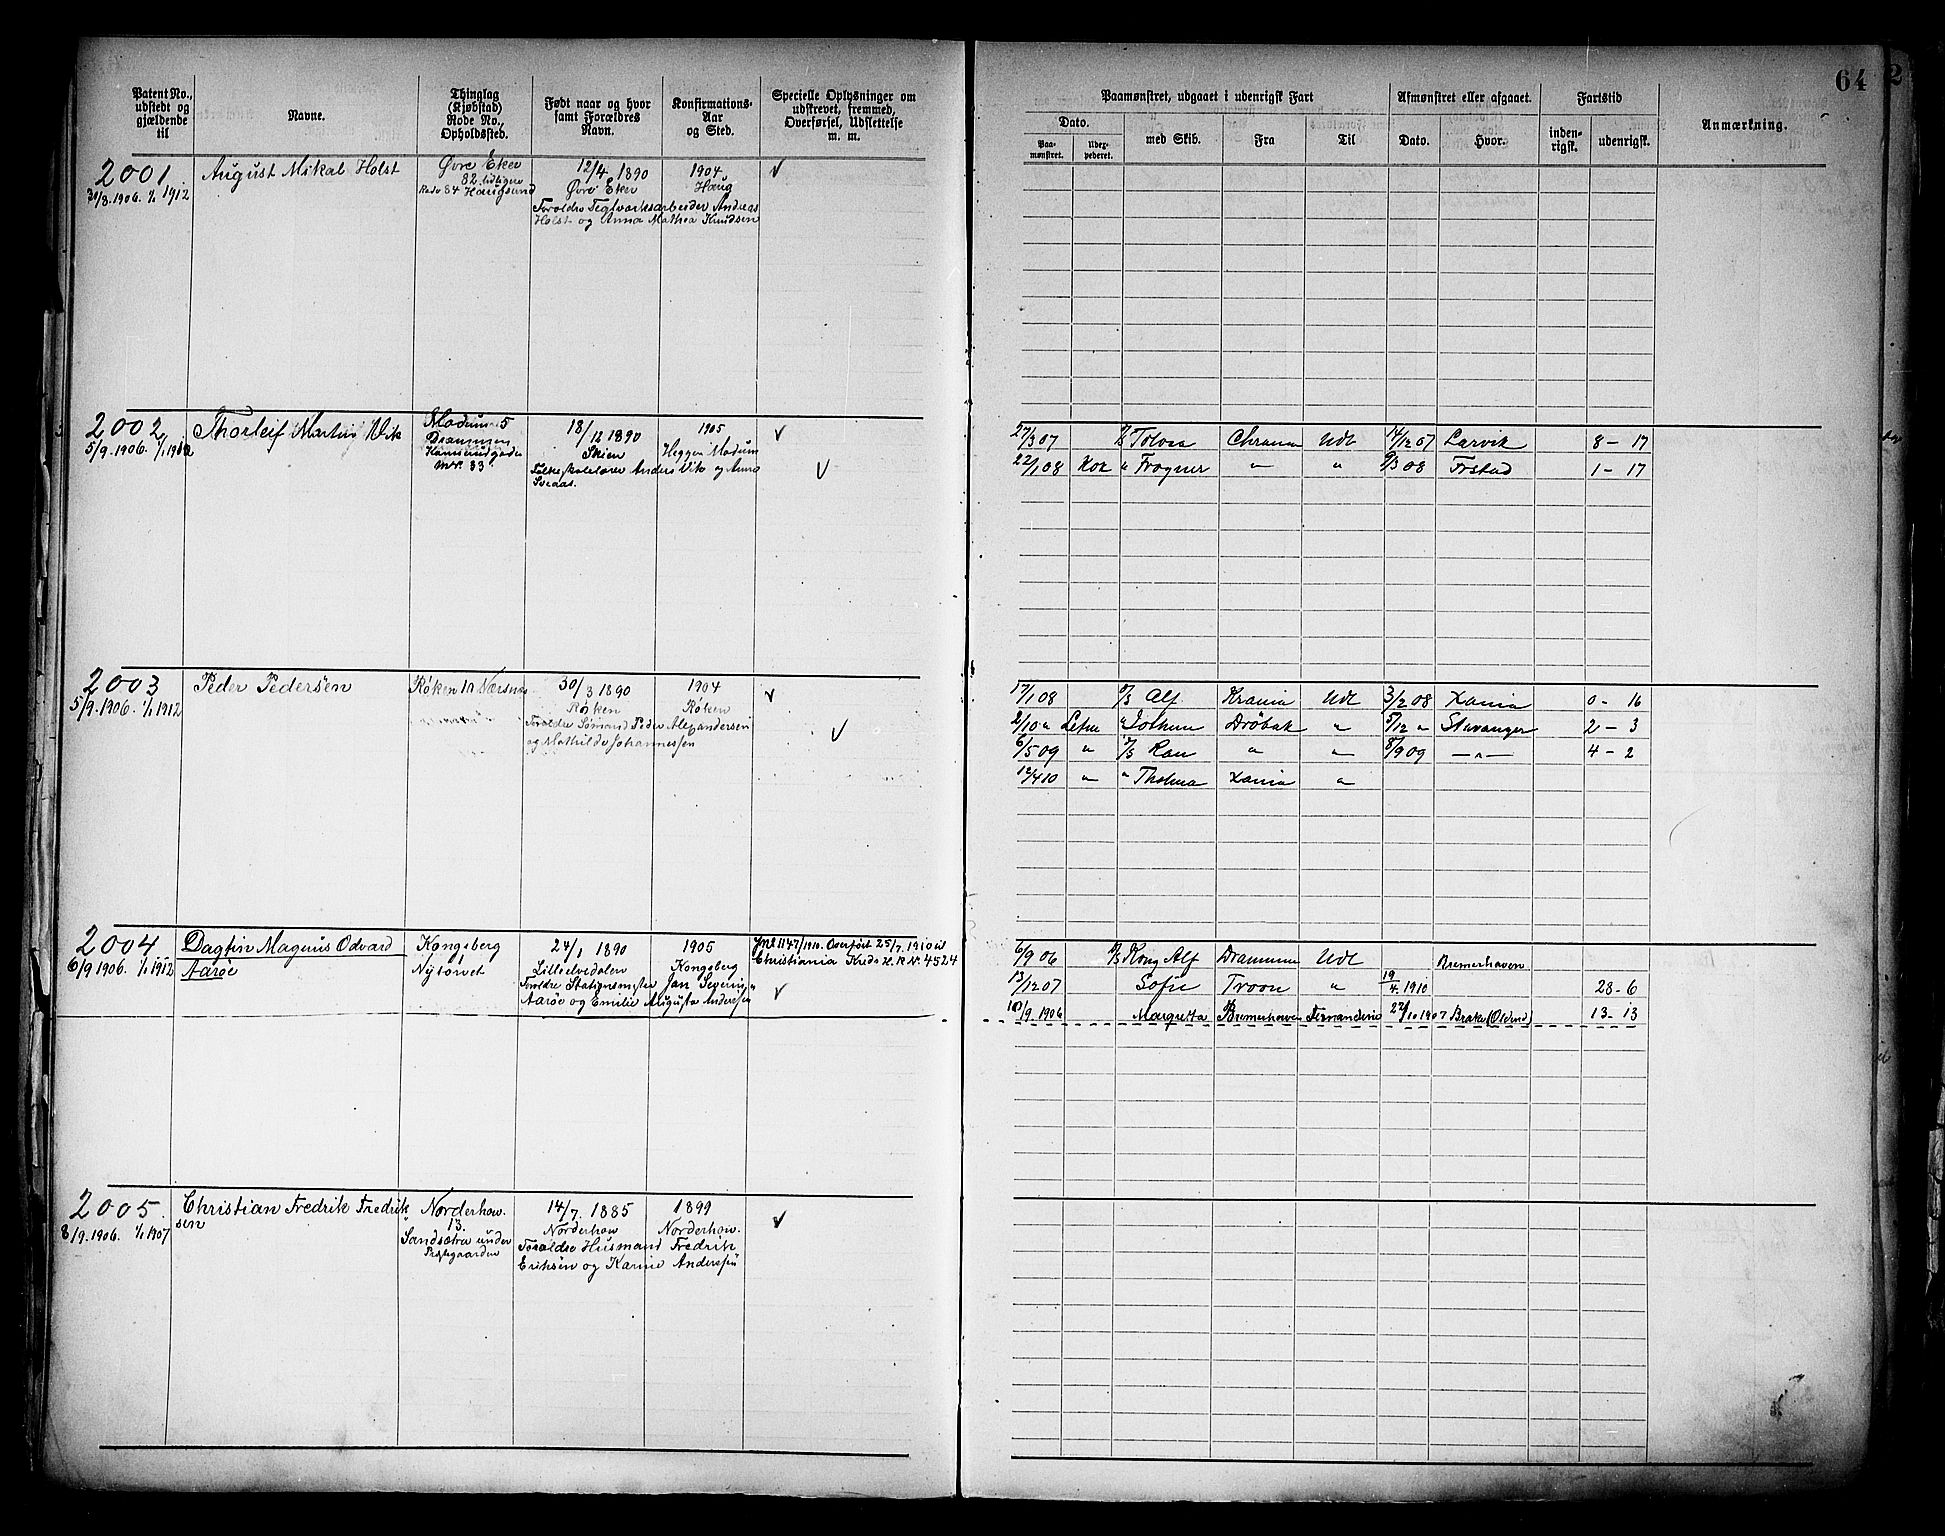 64
2
Patent No., udstedt og gjældende til
Navne.
Thinglag (Kjøbstad) Rode No., Opholdssted.
Født naar og hvor samt Forældres Navn.
Konfirmations-Aar og Sted.
Specielle Oplysninger om udskrevet, fremmed, Overførsel, Udslettelse m. m.
Paamønstret, udgaaet i udenrigsk Fart
Afmønstret eller afgaaet.
Fartstid
Anmærkning.
Dato.
Paa-mønstret.
med Skib.
Fra
Til
Dato.
Hvor.
inden-rigsk.
udenrigsk.
2001 August Mikal Holst Øvre Eker 12/4 1890 1904 √
31/8. 1906. 1/1 1912 82 tidligere Øvre Eker Haug
Rode 84 Haugsund
Foreldre Teglverksarbeider Andreas
Holst og Anna Mathea Knudsen
2002 Thorleif Martin Vik Modum 5 18/12 1890 1905 √
5/9. 1906. Drammen Skien Heggen i Modum
Folkeskolelærer Anders Vik og Anna √
27/3 07 Tolosa Chrania Udl 14/12 07 Larvik 8 - 17
22/1 08 Kok " Frogner " " 9/3 08 Frstad 1 - 17
2003 Peder Pedersen Røken 10 Nærsnes 30/3 1890 1904 √
5/9. 1906. 1/1 1912 Røken Røken
Foreldre Sømand Peder Alexandersen √
og Mathilde Johannessen
17/1 08 Alf Krania Udl 3/2 08 Xania 0 - 16
2/10 " Letm " Jothun Drøbak " 5/12 " Stavanger 2 - 3
6/5 09 " Ran " " 8/9 09 — " — 4 - 2
12/4 10 " " Thelma Xania "
2004 Dagfin Magnus Odvard Kongsberg 24/1 1890 1905 Jnl 1147/1910. Overført 25/7. 1910 til
6/9 1906. 1/1 1912 Aarøe Nytorvet Lillselvedalen Kongsberg Christiania Kreds H. R. No. 4524
Foreldre Stationsmester Jan Severin
Aarøe og Emilie Augusta Andersen √
6/9 06 Kong Alf Drammen Udl Bremerhaven
13/12 07 Sofie Troon " 19/4. 1910 28 - 6
10/9. 1906 Margretta Bremerhaven 22/10 1907 Brake (Oldend) 13 - 13
2005. Christian Fredrik Fredriksen Norderhow. 14/7. 1885 1899 √
8/9. 1906. 1/1 1907 13. Norderhow Norderhow.
Sandsætra under Foreldre Husmand Fredrik
Prestegaarden Eriksen og Karine Andersen